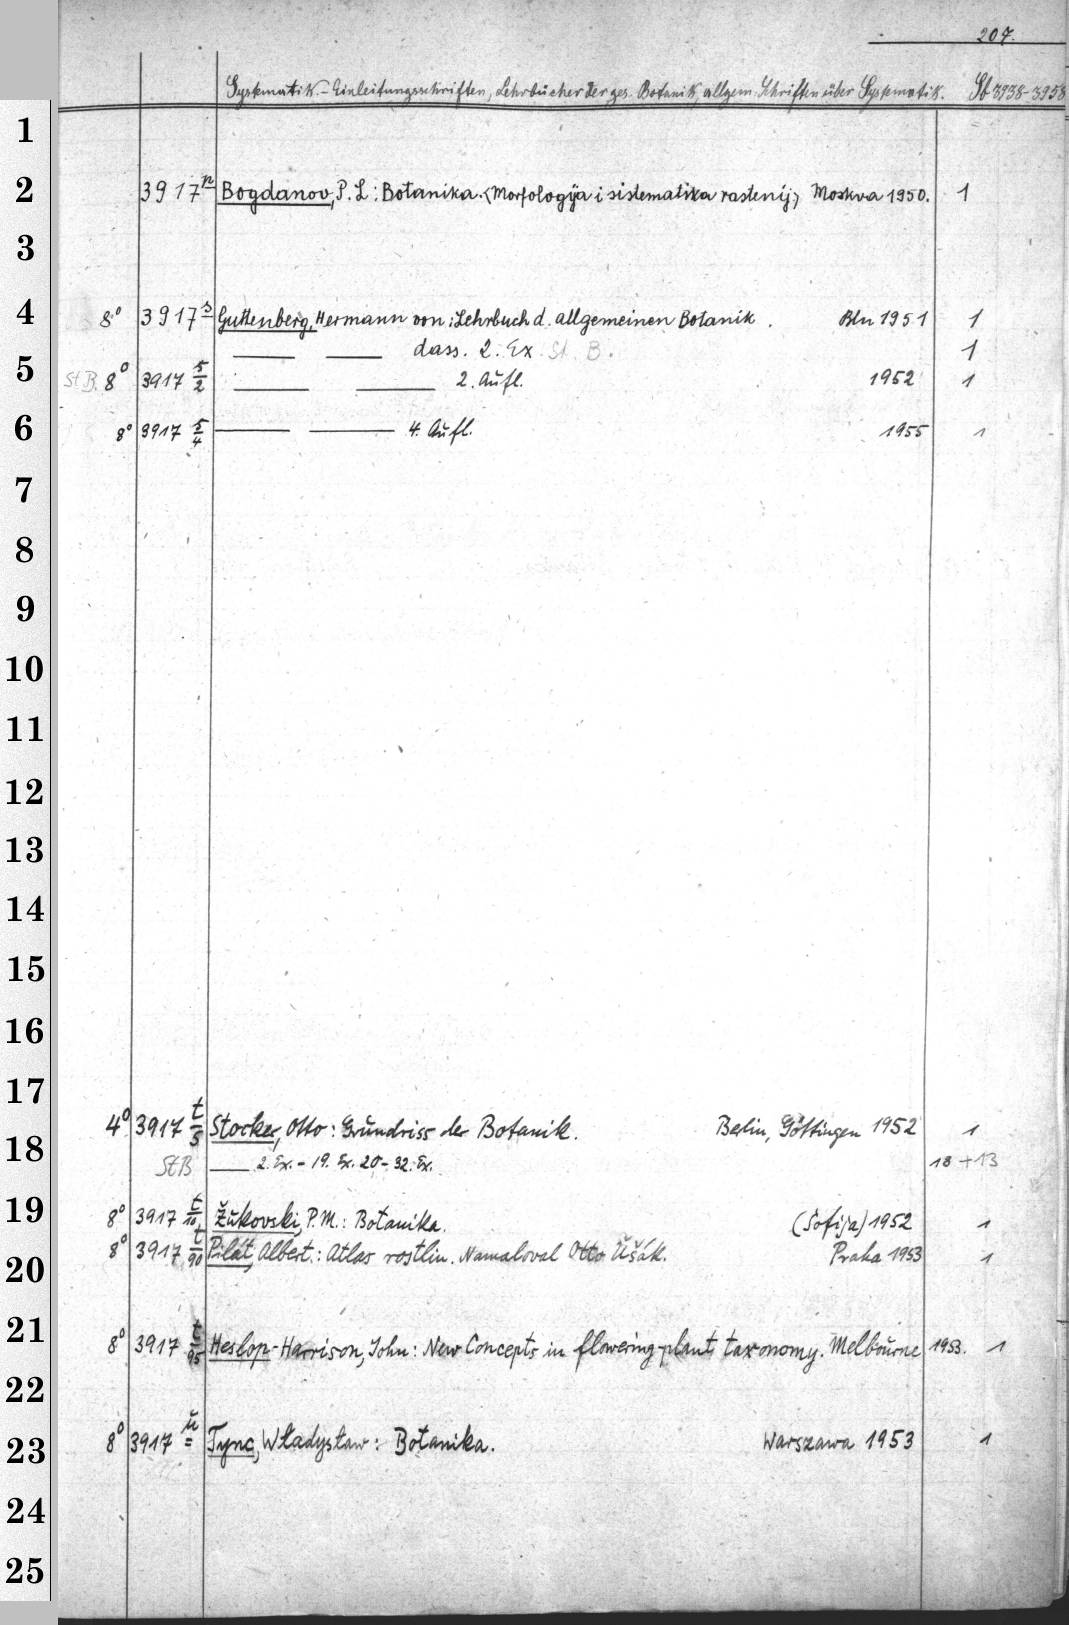 207.
Systematik.-Einleitungsschriften, Lehrbücher der ges. Botanik, allgem. Schriften über Systematik. Sb 3938-3958
1
2 3917 n Bogdanov, P. L.: Botanika. (Morfologija i sistematika rastenij.) Moskva 1950. 1
3
4 8° 3917 s Guttenberg, Hermann von: Lehrbuch d. allgemeinen Botanik. Bln 1951 1
dass. 2. Ex. St. B. 1
5 St B. 8° 3917 s/2 2. Aufl. 1952 1
6 8° 3917 s/4 4. Aufl. 1955 1
7
8
9
10
11
12
13
14
15
16
17
4° 3917 t/5 Stocker, Otto: Grundriss der Botanik. Berlin, Göttingen 1952 1
18 StB 2. Ex. - 19. Ex. 20 - 32. Ex. 18 + 13
19 8° 3917 t/10 Žukovski, P. M.: Botanika. (Sofija) 1952 1
20 8° 3917 t/90 Pilát, Albert.: Atlas rostlin. Namaloval Otto Ušák. Praha 1953 1
21 8° 3917 t/95 Heslop-Harrison, John: New Concepts in flowering-plant taxonomy. Melbourne 1953. 1
22
23 8° 3917 u Tync, Władysław: Botanika. Warszawa 1953 1
24
25